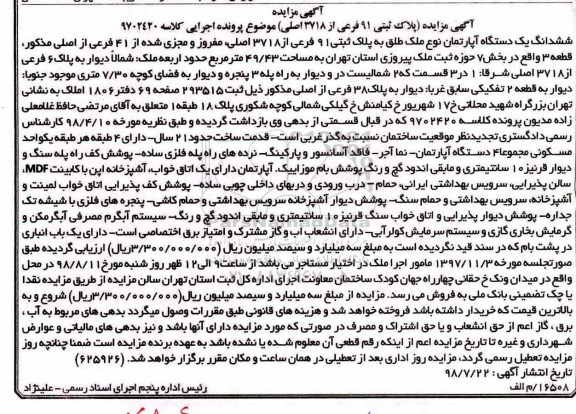 آگهی مزایده
آگهی مزایده (پلاک ثبتی ۹۱ فرعی از ۳۷۱۸ اصلی) موضوع پرونده اجرایی کلاسه ۹۷۰۲۴۲۰
ششدانگ یک دستگاه آپارتمان نوع ملک طلق به پلاک ثبتی ۹۱ فرعی از ۳۷۱۸ اصلی، مفروز و مجزی شده از ۴۱ فرعی از اصلی مذکور،
قطعه ۳ واقع در بخش ۷ حوزه ثبت ملک پیروزی استان تهران به مساحت ۴۹/۴۳ مترمربع حدود اربعه ملک: شمالاً دیوار به پلاک ۶ فرعی
از ۳۷۱۸ اصلی شرقا: ۱ در ۳ قسمت که ۲ شمالیست در و دیوار به راه پله ۳ پنجره و دیوار به فضای کوچه ۷/۳۰ متری موجود جنوبا:
دیوار به قطعه ۲ تفکیکی سابق غربا: دیواریست به پلاک ۳۸ فرعی از اصلی مذکور ذیل ثبت ۲۹۳۵۱۵ صفحه ۶۹ دفتر ۱۸۰۶ املاک به نشانی
تهران بزرگراه شهید محلاتی خ ۱۷ شهریور خ کیامنش خ گیلکی شمالی کوچه شکوری پلاک ۱۸ طبقه ۱ متعلق به آقای مرتضی حافظ غلامعلی
زاده مدیون پرونده کلاسه ۹۷۰۲۴۲۰ که در قبال قسمتی از بدهی وی بازداشت گردیده و طبق نظریه مورخه ۹۸/۴/۱۰ کارشناس
رسمی دادگستری تجدیدنظر موقعیت ساختمان نسبت به گذر غربی است- قدمت ساخت حدود ۲۱ سال- دارای ۴ طبقه هر طبقه یکواحد
مسکونی مجموعا ۴ دستگاه آپارتمان- نما آجر- فاقد آسانسور و پارکینگ- نرده های راه پله فلزی ساده- پوشش کف راه پله سنگ و
دیوار قرنیز ۱۰ سانتیمتری و مابقی اندود گچ و رنگ پوشش بام موزاییک. آپارتمان دارای یک اتاق خواب، آشپزخانه اپن با کابینت MDF،
سالن پذیرایی، سرویس بهداشتی ایرانی، حمام - درب ورودی و دربهای داخلی چوبی ساده- پوشش کف پذیرایی اتاق خواب لمینت و
آشپزخانه، سرویس بهداشتی و حمام سنگ- پوشش دیوار آشپزخانه سرویس بهداشتی و حمام کاشی- پنجره های فلزی با شیشه تک
جداره- پوشش دیوار پذیرایی و اتاق خواب سنگ قرنیز ۱۰ سانتیمتری و مابقی اندود گچ و رنگ- سیستم آبگرم مصرفی آبگرمکن و
گرمایش بخاری گازی و سیستم سرمایش کولرآبی- دارای انشعاب آب و گاز مشترک و امتیاز برق اختصاصی است- دارای یک باب انباری
در پشت بام که در سند قید نگردیده است به مبلغ سه میلیارد و سیصد میلیون ریال (۳/۳۰۰/۰۰۰/۰۰۰ریال) ارزیابی گردیده طبق
صورتجلسه مورخه ۱۳۹۷/۱۱/۳ مامور اجرا ملک در اختیار مستاجر می باشد از ساعت ۹ الی ۱۲ ظهر روز شنبه مورخ ۹۸/۸/۱۱ در محل
واقع در میدان ونک خ حقانی چهارراه جهان کودک ساختمان معاونت اجرای اداره کل ثبت استان تهران سالن مزایده از طریق مزایده نقدا
یا چک تضمینی بانک ملی به فروش می رسد. مزایده از مبلغ سه میلیارد و سیصد میلیون ریال (۳/۳۰۰/۰۰۰/۰۰۰ریال) شروع و به
بالاترین قیمت که خریدار داشته باشد فروخته خواهد شد و هزینه های قانونی طبق مقررات وصول میگردد بدهی های مربوط به آب ،
برق ، گاز اعم از حق انشعاب و یا حق اشتراک و مصرف در صورتی که مورد مزایده دارای آنها باشد و نیز بدهی های مالیاتی و عوارض
شهرداری و غیره تا تاریخ مزایده اعم از اینکه رقم قطعی آن معلوم شده یا نشده باشد به عهده برنده مزایده است ضمنا چنانچه روز
مزایده تعطیل رسمی گردد، مزایده روز اداری بعد از تعطیلی در همان ساعت و مکان مقرر برگزار خواهد شد. (۶۲۵۹۲۶)
تاریخ انتشار آگهی : ۹۸/۷/۲۲
۱۶۵۰۸/م الف رئیس اداره پنجم اجرای اسناد رسمی - علینژاد